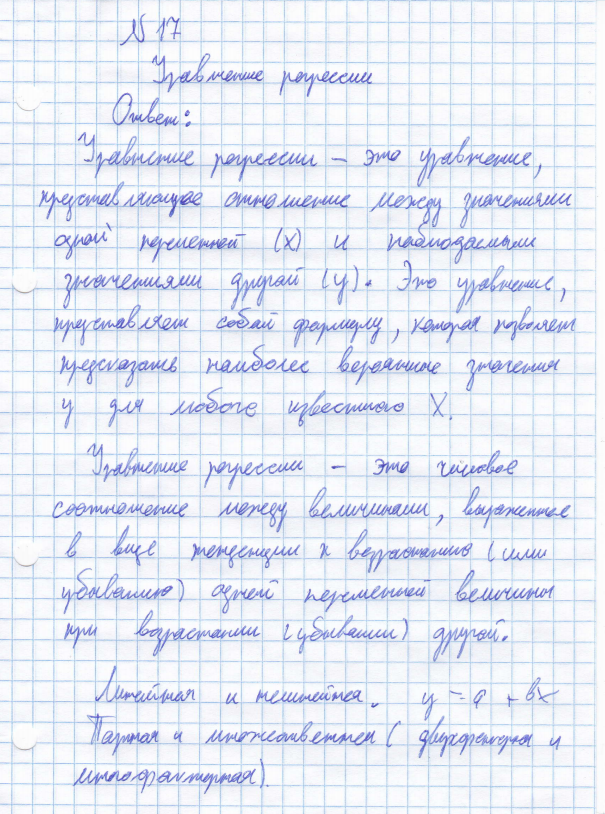 N 17
Уравнение регрессии
Ответ:
Уравнение регрессии – это уравнение,
представляющее отношение между значениями
одной переменной (x) и наблюдаемыми
значениями другой (y). Это уравнение,
представляет собой формулу, которая позволяет
предсказать наиболее вероятные значения
y для любого известного X.
Уравнение регрессии – это числовое
соотношение между величинами, выраженное
в виде тенденции к возрастанию (или
убыванию) одной переменной величины
при возрастании (убывании) другой.
Линейная и нелинейная. y = a + bx
Парная и множественная ( двухфакторная и
многофакторная).